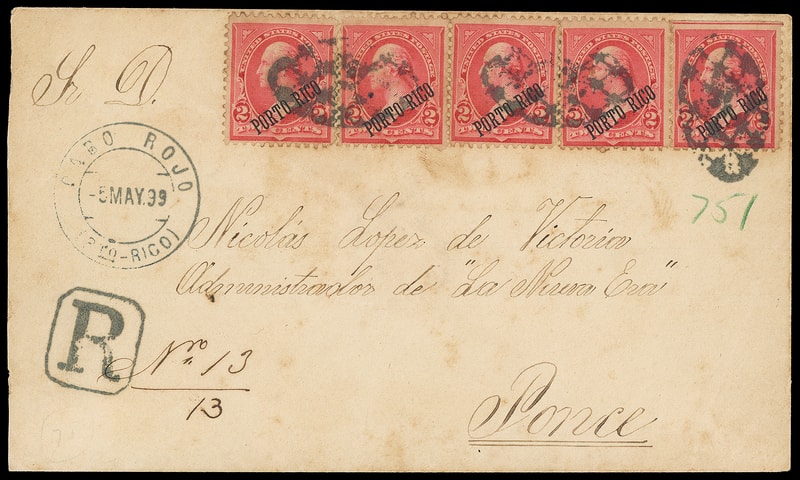 UNITED STATES POSTAGE UNITED STATES POSTAGE UNITED STATES POSTAGE UNITED STATES POSTAGE UNITED STATES POSTAGE
PORTO RICO PORTO RICO PORTO RICO PORTO RICO PORTO RICO
2 CENTS 2 2 CENTS 2 2 CENTS 2 2 CENTS 2 2 CENTS 2
Sr. D.
CABO ROJO
-5 MAY.99
(PTO-RICO)
751
Nicolás Lopez de Victoria
Administrador de "La Nueva Era"
R
Nro 13
13
Ponce